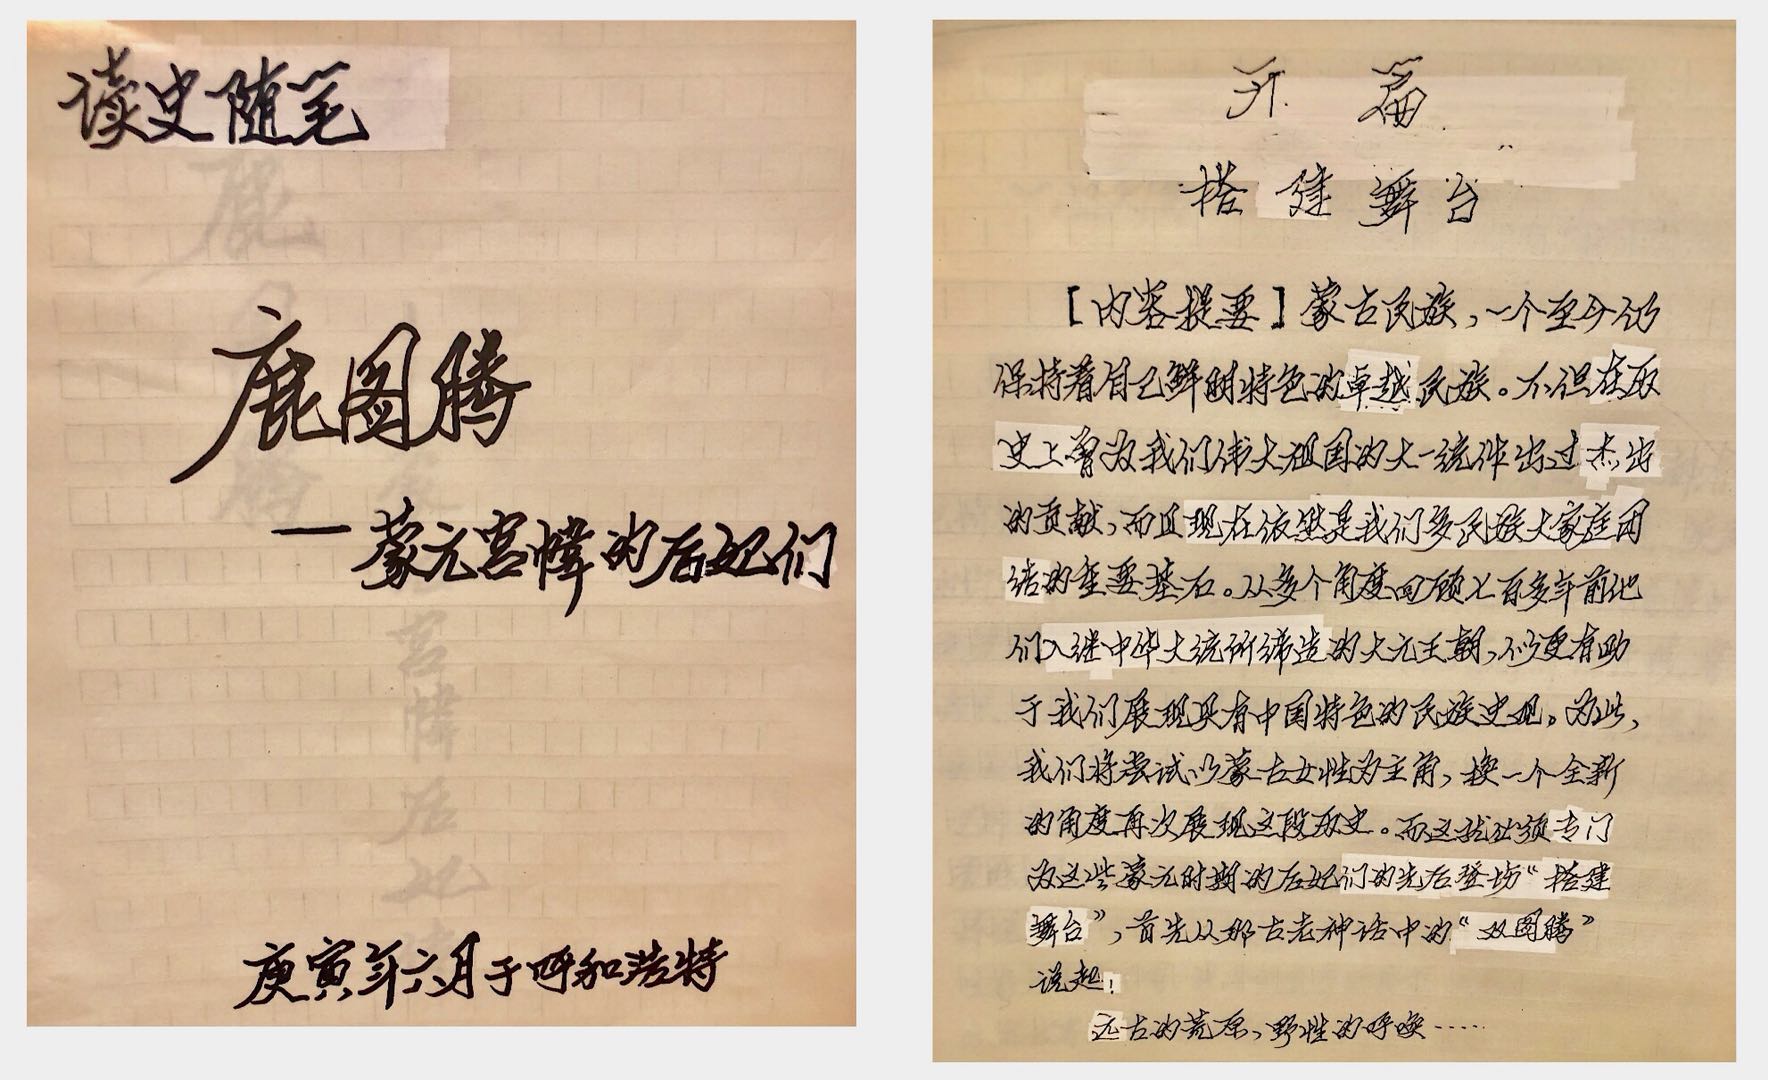 读史随笔
鹿图腾
——蒙元宫帏的后妃们
庚寅年六月于呼和浩特
开 篇
搭建舞台
【内容提要】蒙古民族，一个至今仍
保持着自己鲜明特色的卓越民族。不但在历
史上曾为我们伟大祖国的大一统作出过杰出
的贡献，而且现在依然是我们多民族大家庭团
结的重要基石。从多个角度回顾七百多年前他
们入继中华大统所缔造的大元王朝，必更有助
于我们展现具有中国特色的民族史观。为此，
我们将尝试以蒙古女性为主角，换一个全新
的角度再次展现这段历史。而这就必须专门
为这些蒙元时期的后妃们的先后登场“搭建
舞台”，首先从那古老神话中的“双图腾”
说起！
远古的荒原、野性的呼唤……